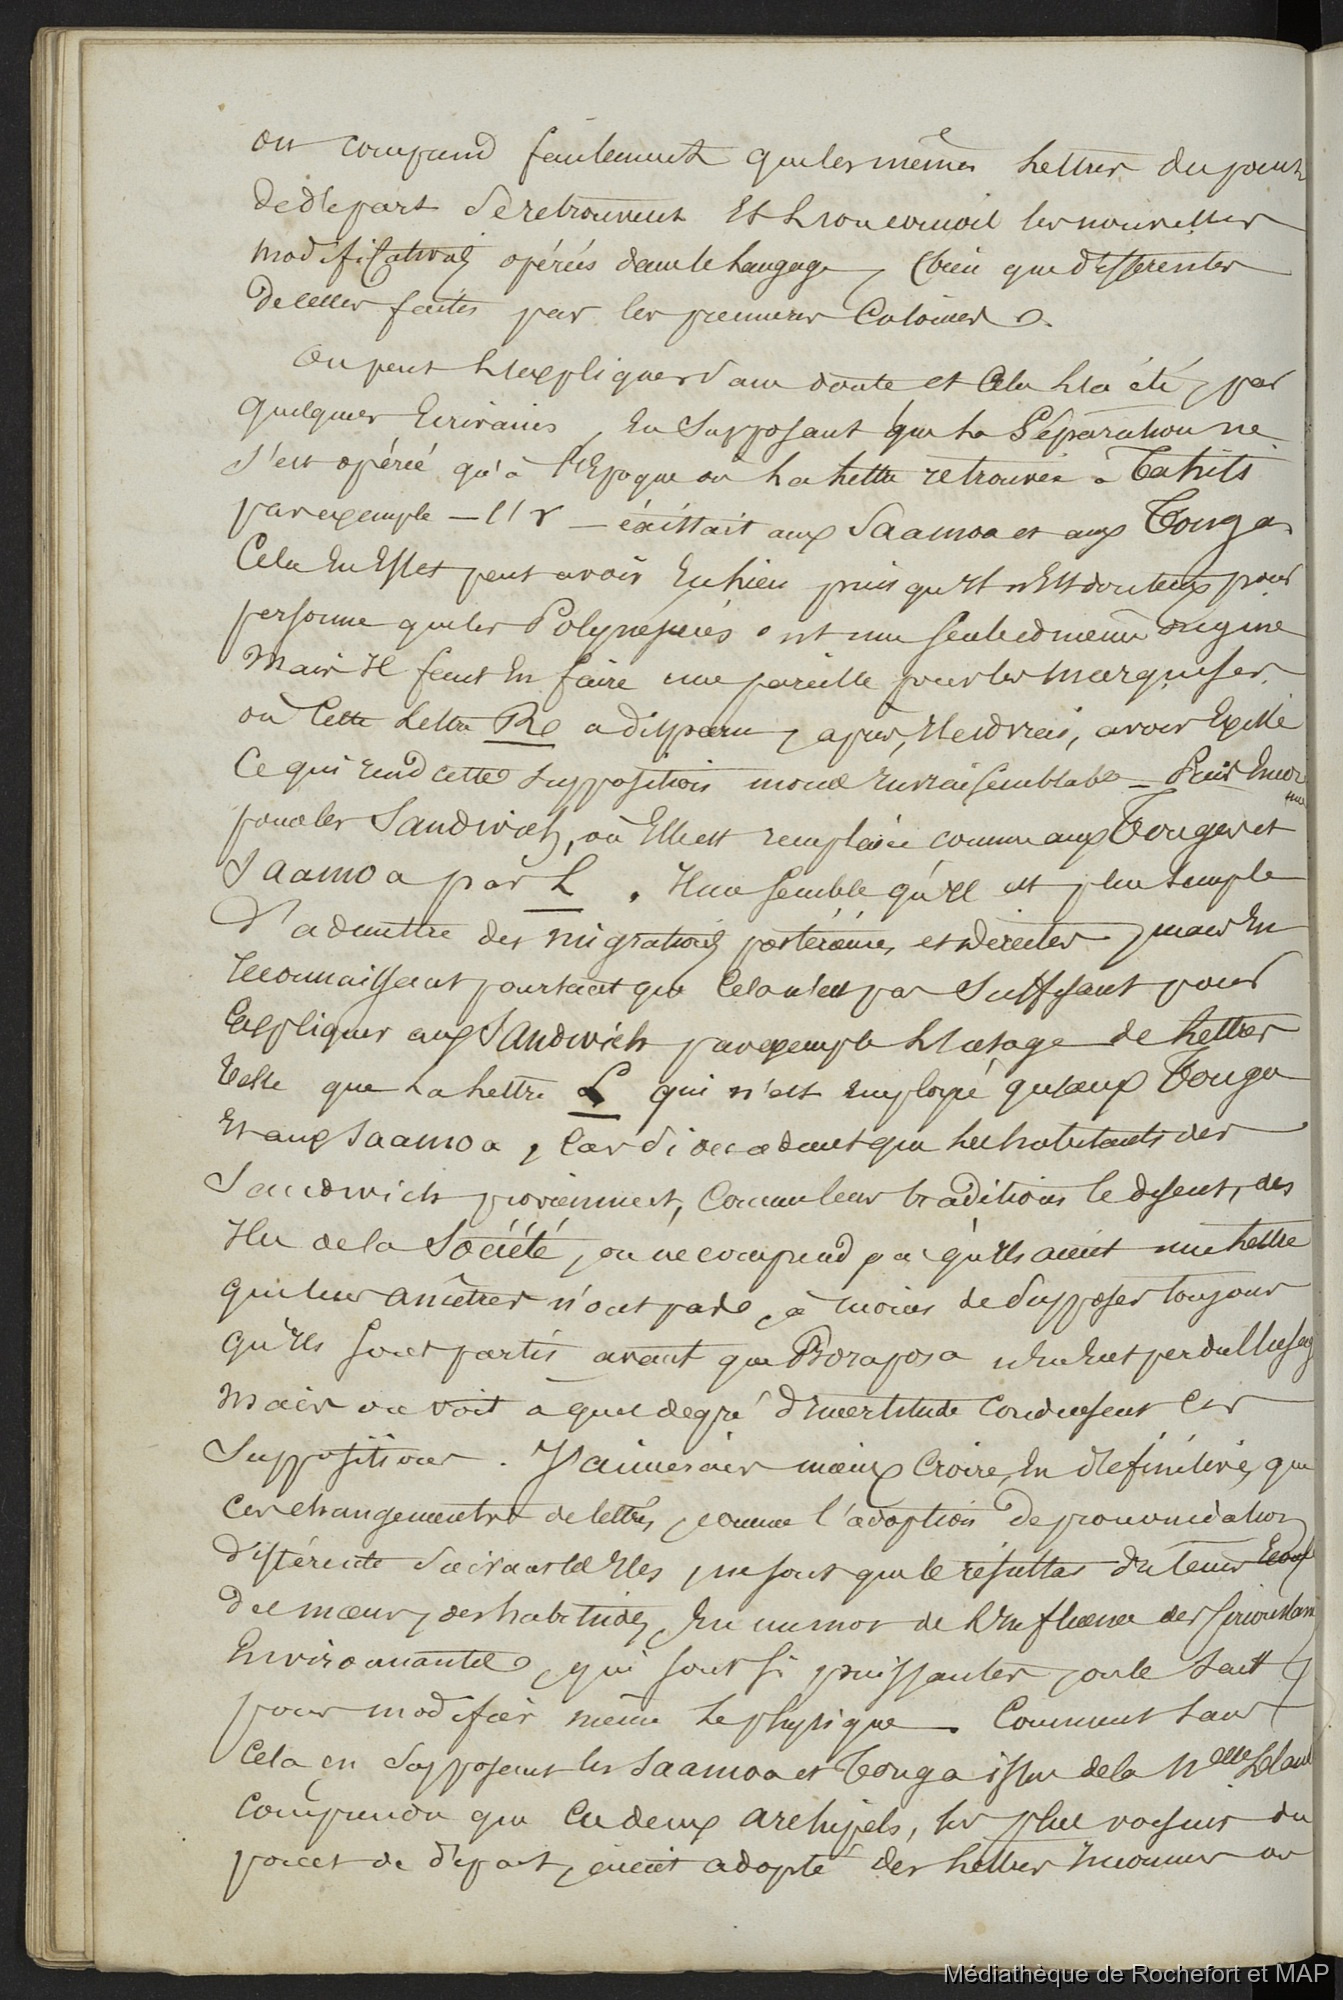 on comprend facilement que les mêmes lettres du point
de départ se retrouvent et l'on conçoit les nouvelles
modifications opérées dans le langage, (bien que différentes
de celles faites par les premiers Colonies).
On peut l'expliquer sans doute et cela l'a été, par
quelques Ecrivains, en supposant que la Séparation ne
s'est opérée qu'à l'Epoque où la lettre retrouvée à Tahiti
par exemple — l'r — éxistait aux Saamoa et aux Tonga.
Cela en Effet peut avoir Eu lieu puisqu'il n'Est douteux pour
personne que les Polynésiens ont une seule et même origine
Mais Il faut En faire une pareille pour les Marquises.
où Cette lettre Re a disparu, après, Il est vrai, avoir Existé
Ce qui rend cette supposition moins Invraisemblable — Puis Encore
une
pour les Sandwich, où Elle est remplacée comme aux Tonga et
Saamoa par L. Il me semble qu'Il est plus simple
d'admettre des migrations postérieures et directes, mais En
reconnaissant pourtant que Cela n'est pas Suffisant pour
Expliquer aux Sandwich par exemple l'usage de lettres
telle que la lettre L qui n'est employé qu'aux Tonga
Et aux Saamoa, Car si on admet que les habitants des
Sandwich proviennent, Comme leurs traditions le disent, des
Iles de la Société, on ne comprend pas qu'Ils aient une lettre
que leurs ancêtres n'ont pas, à moins de Supposer toujours
qu'Ils sont partis avant que Borapora n'en eut perdu l'usage
Mais on voit à quel degré d'Incertitude Conduisent ces
Suppositions. J'aimerais mieux Croire, En définitive, que
ces changements de lettres, comme l'adoption de prononciation
différente Suivant les Iles, ne sont que le résultat du tems
des mœurs, des habitudes, En un mot de l'Influence des Circonstances
Environnantes, qui sont si puissantes, on le sait,
pour modifier même le physique. Comment sans
Cela en Supposant les Saamoa et Tonga issus de la Nelle Zélande
Comprendre que Ces deux archipels, les plus voisins du
point de départ, aient adopté des lettres Inconnues au
Médiathèque de Rochefort et MAP